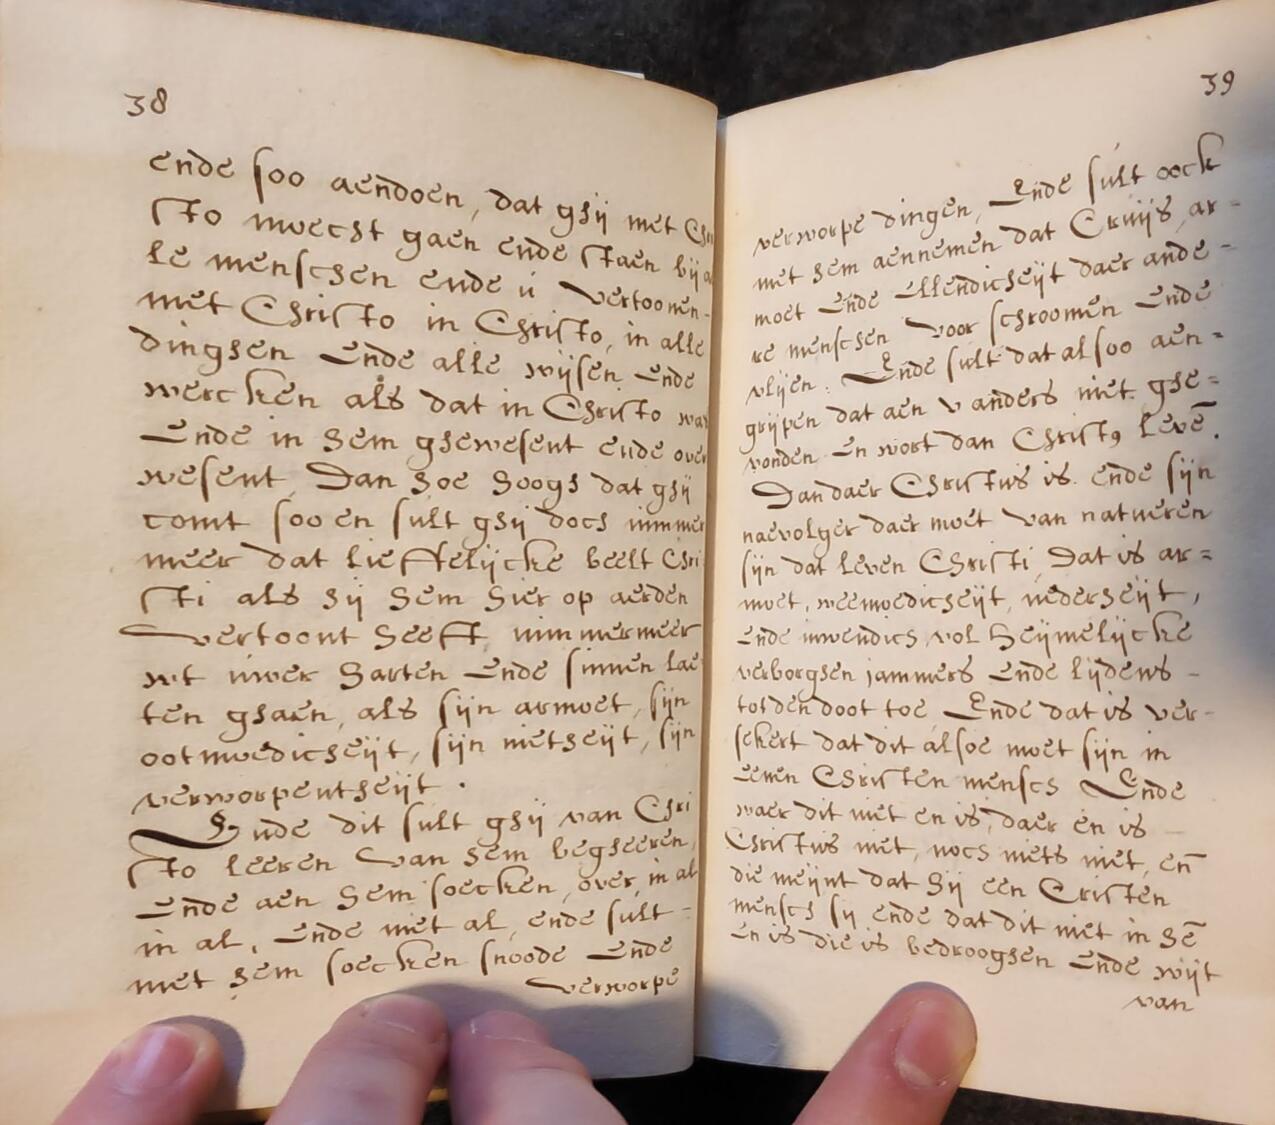 38
ende soo aendoen, dat ghij met Chri
sto moecht gaen ende staen bij al
le menschen ende ú vertoonen-
met Christo in Christo, in alle
dinghen Ende alle wijsen Ende
wercken als dat in Christo was
Ende in hem ghewesent ende over
wesent, Dan hoe hoogh dat ghij
comt soo en sult ghij doch nimmer
meer dat lieftelijcke beelt Chri
sti als hij hem hier op aerden
vertoont heeft, nimmermeer
wt úwer harten Ende sinnen lae
ten ghaen, als sijn armoet, sijn
ootmoedicheijt, sijn nietheijt, sijn
verworpentheijt.
Ende dit sult ghij van Chri
sto leeren van hem begheeren,
Ende aen hem soecken, over, in al
in al, Ende niet al, ende sult-
met hem soecken snoode Ende
verworpe
39
verworpe dingen, Ende sult oock
met hem aennemen dat Cruijs, ar-
moet Ende Ellendicheijt daer ande-
re menschen voor schroomen Ende
vlijen. Ende sult dat alsoo aen-
grijpen dat aen v anders niet ghe-
vonden En wort dan Christ9 levē.
Dan daer Christus is. ende sijn
naevolger daer moet van natueren
sijn dat leven Christi, Dat is ar-
moet, weemoedicheijt, nederheijt,
Ende inwendich, vol heijmelijcke
verborghen jammers Ende lijdens-
tot den doot toe, Ende dat is ver-
sekert dat dit alsoe moet sijn in
Eenen Christen mensch Ende
waer dit niet en is, daer en is
Christus niet, noch niets niet, en̄
die meijnt dat hij een Cristen
mensch sij ende dat dit niet in hē
En is die is bedrooghen Ende wijt
van